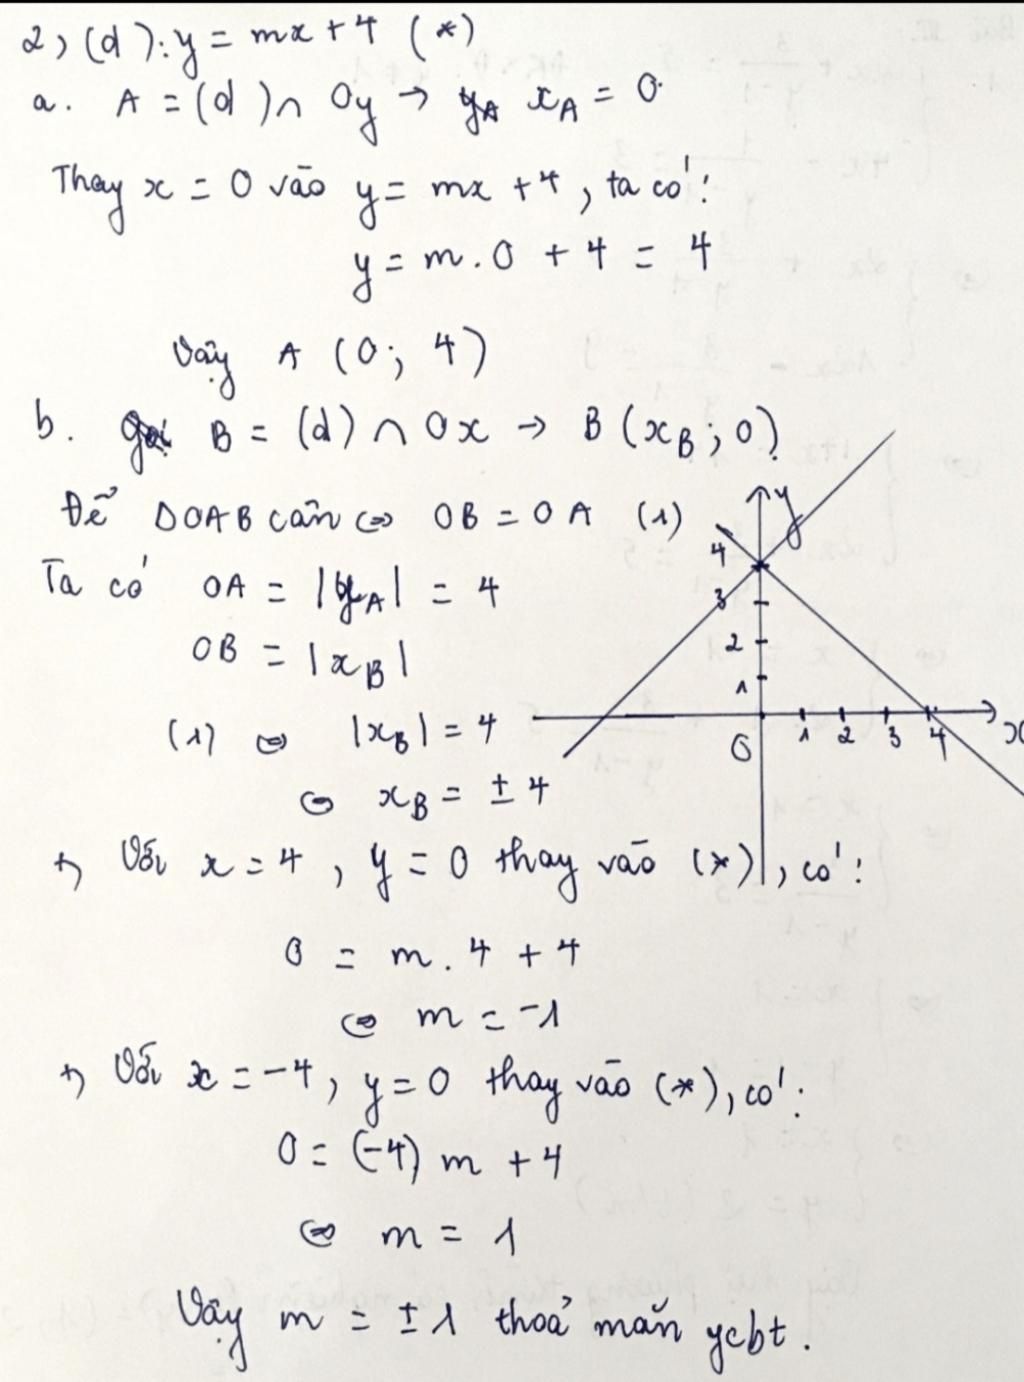 2) (d): y = mx + 4 (*)
a. A = (d) ∩ Oy → x_A = 0
Thay x = 0 vào y = mx + 4, ta có:
y = m . 0 + 4 = 4
Vậy A (0; 4)
b. gọi B = (d) ∩ Ox → B (x_B; 0)
Để ΔOAB cân ⇔ OB = OA (1)
Ta có OA = |y_A| = 4
OB = |x_B|
(1) ⇔ |x_B| = 4
⇔ x_B = ± 4
y
4
3
2
1
O 1 2 3 4 x
+) Với x = 4, y = 0 thay vào (*), có:
0 = m . 4 + 4
⇔ m = -1
+) Với x = -4, y = 0 thay vào (*), có:
0 = (-4) m + 4
⇔ m = 1
Vậy m = ± 1 thoả mãn ycbt.